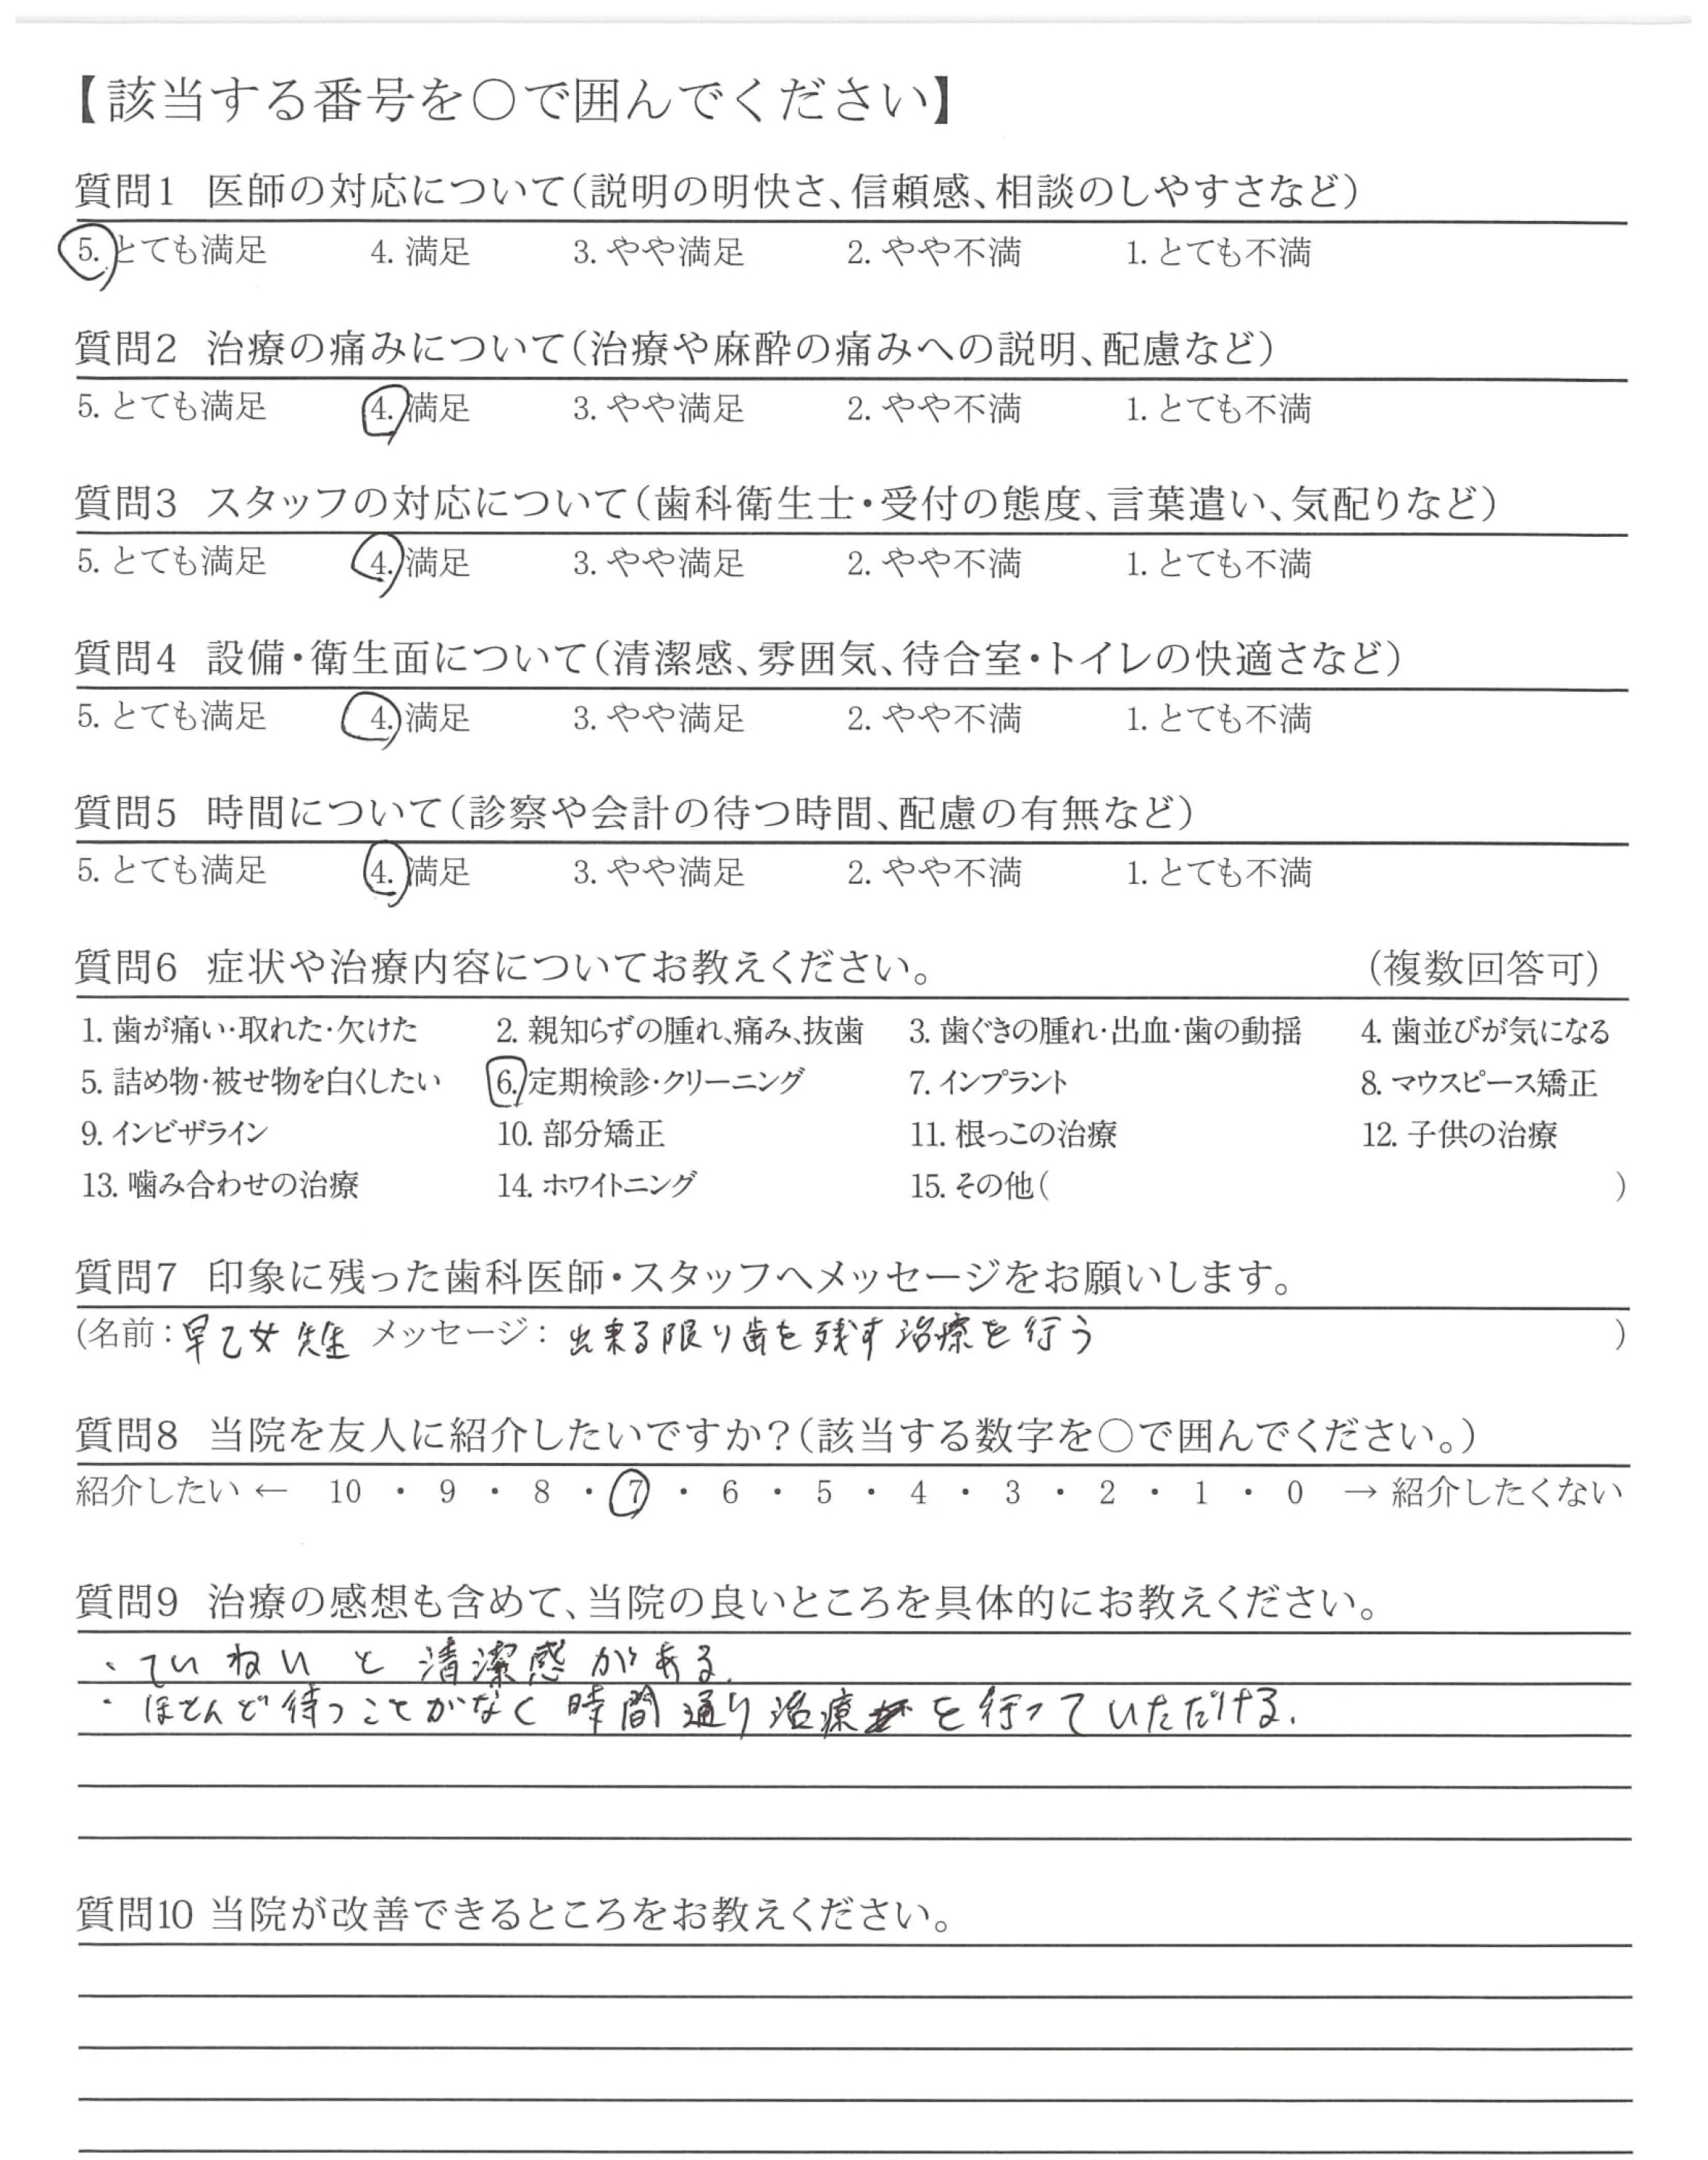 【該当する番号を○で囲んでください】
質問1 医師の対応について(説明の明快さ、信頼感、相談のしやすさなど)
5. とても満足 4. 満足 3. やや満足 2. やや不満 1. とても不満
質問2 治療の痛みについて(治療や麻酔の痛みへの説明、配慮など)
5. とても満足 4. 満足 3. やや満足 2. やや不満 1. とても不満
質問3 スタッフの対応について(歯科衛生士・受付の態度、言葉遣い、気配りなど)
5. とても満足 4. 満足 3. やや満足 2. やや不満 1. とても不満
質問4 設備・衛生面について(清潔感、雰囲気、待合室・トイレの快適さなど)
5. とても満足 4. 満足 3. やや満足 2. やや不満 1. とても不満
質問5 時間について(診察や会計の待つ時間、配慮の有無など)
5. とても満足 4. 満足 3. やや満足 2. やや不満 1. とても不満
質問6 症状や治療内容についてお教えください。 (複数回答可)
1. 歯が痛い・取れた・欠けた 2. 親知らずの腫れ、痛み、抜歯 3. 歯ぐきの腫れ・出血・歯の動揺 4. 歯並びが気になる
5. 詰め物・被せ物を白くしたい 6. 定期検診・クリーニング 7. インプラント 8. マウスピース矯正
9. インビザライン 10. 部分矯正 11. 根っこの治療 12. 子供の治療
13. 噛み合わせの治療 14. ホワイトニング 15. その他( )
質問7 印象に残った歯科医師・スタッフへメッセージをお願いします。
(名前：早乙女 先生 メッセージ：出来る限り歯を残す治療を行う )
質問8 当院を友人に紹介したいですか？(該当する数字を○で囲んでください。)
紹介したい ← 10 ・ 9 ・ 8 ・ 7 ・ 6 ・ 5 ・ 4 ・ 3 ・ 2 ・ 1 ・ 0 → 紹介したくない
質問9 治療の感想も含めて、当院の良いところを具体的にお教えください。
・ていねいと清潔感がある.
・ほとんど待つことがなく時間通り治療を行っていただける.
質問10 当院が改善できるところをお教えください。